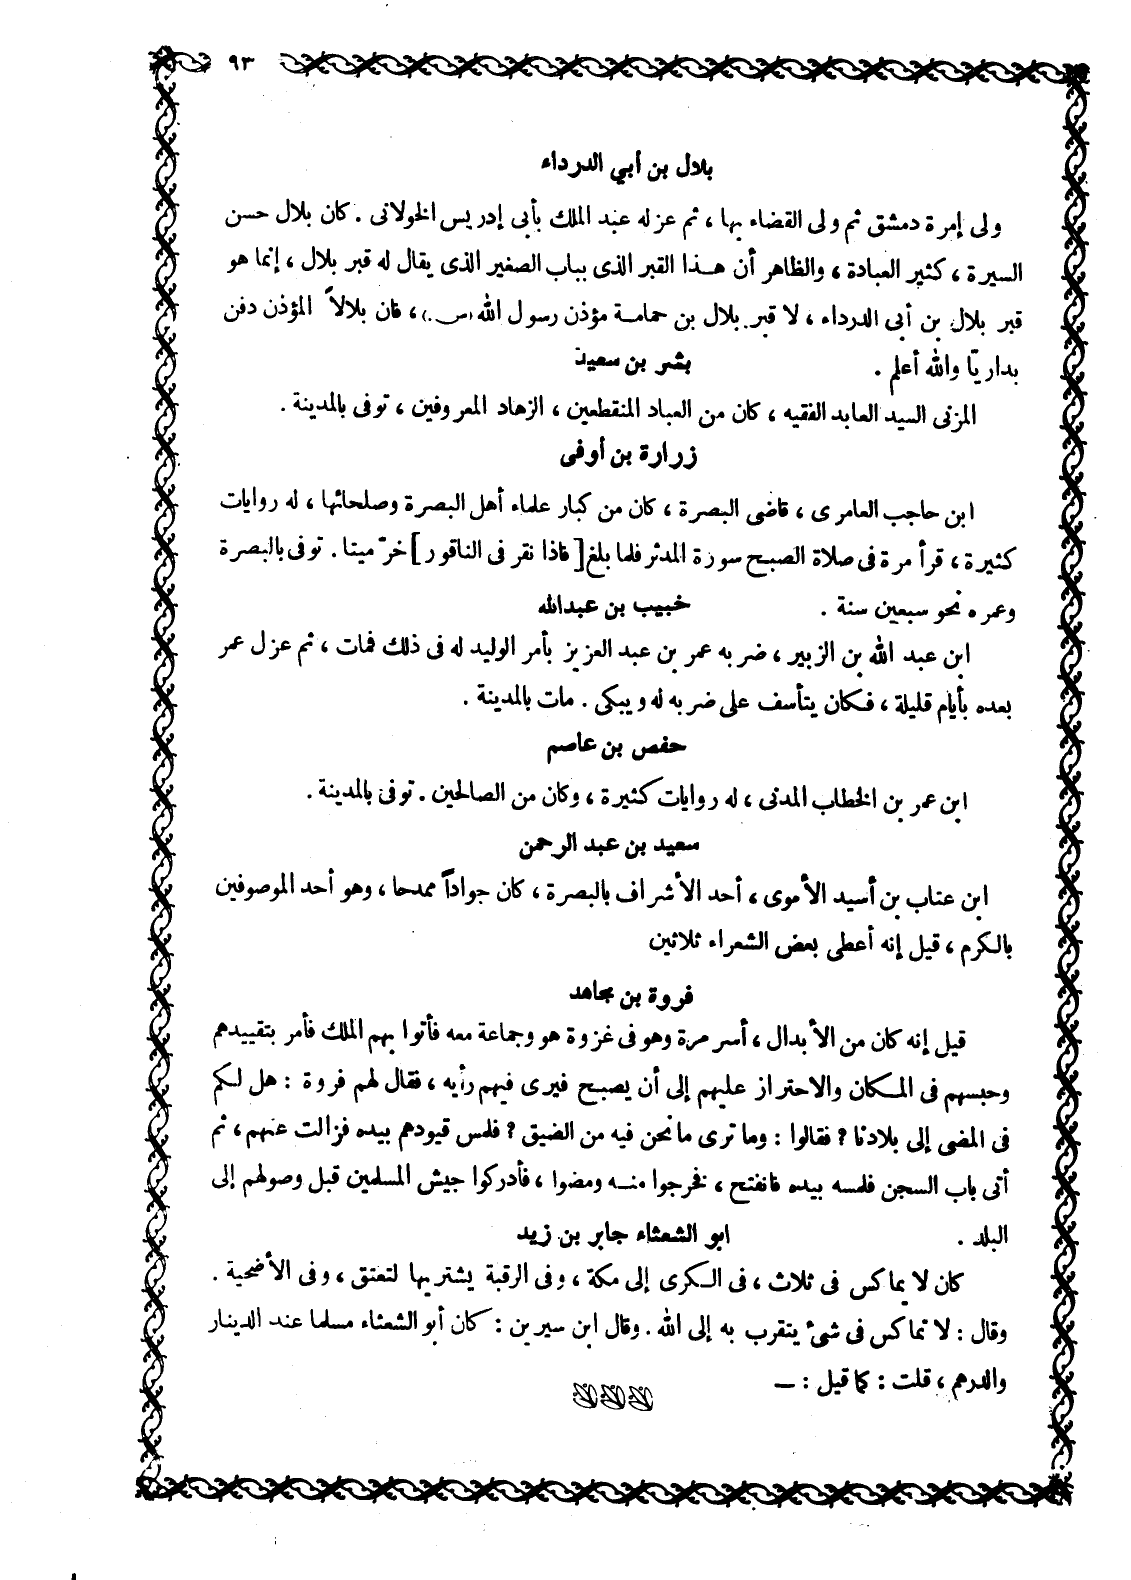 ٩٣
بلال بن أبي الدرداء
ولى إمرة دمشق ثم ولى القضاء بها ، ثم عزله عبد الملك بأبى إدريس الخولانى . كان بلال حسن
السيرة ، كثير العبادة ، والظاهر أن هـذا القبر الذى بباب الصغير الذى يقال له قبر بلال ، إنما هو
قبر بلال بن أبى الدرداء ، لا قبر بلال بن حمامـة مؤذن رسول الله (س.) ، فان بلالاً المؤذن دفن
بداريّا والله أعلم .
بشر بن سعيد
المزنى السيد العابد الفقيه ، كان من العباد المنقطعين ، الزهاد المعروفين ، توفى بالمدينة .
زرارة بن أوفى
ابن حاجب العامرى ، قاضى البصرة ، كان من كبار علماء أهل البصرة وصلحائها ، له روايات
كثيرة ، قرأ مرة فى صلاة الصبح سورة المدثر فلما بلغ [فاذا نقر فى الناقور] خرّ ميتا . توفى بالبصرة
وعمره نحو سبعين سنة .
خبيب بن عبدالله
ابن عبد الله بن الزبير ، ضربه عمر بن عبد العزيز بأمر الوليد له فى ذلك فمات ، ثم عزل عمر
بعده بأيام قليلة ، فكان يتأسف على ضربه له ويبكى . مات بالمدينة .
حفص بن عاصم
ابن عمر بن الخطاب المدنى ، له روايات كثيرة ، وكان من الصالحين . توفى بالمدينة .
سعيد بن عبد الرحمن
ابن عتاب بن أسيد الأموى ، أحد الأشراف بالبصرة ، كان جواداً ممدحا ، وهو أحد الموصوفين
بالكرم ، قيل إنه أعطى بعض الشعراء ثلاثين
فروة بن مجاهد
قيل إنه كان من الأبدال ، أسر مرة وهو فى غزوة هو وجماعة معه فأتوا بهم الملك فأمر بتقييدهم
وحبسهم فى المكان والاحتراز عليهم إلى أن يصبح فيرى فيهم رأيه ، فقال لهم فروة : هل لكم
فى المضى إلى بلادنا ؟ فقالوا : وما ترى ما نحن فيه من الضيق ؟ فلمس قيودهم بيده فزالت عنهم ، ثم
أتى باب السجن فلمسه بيده فانفتح ، فخرجوا منـه ومضوا ، فأدركوا جيش المسلمين قبل وصولهم إلى
البلد .
ابو الشعثاء جابر بن زيد
كان لا يماكس فى ثلاث ، فى الكرى إلى مكة ، وفى الرقبة يشتريها لتعتق ، وفى الأضحية .
وقال : لا تماكس فى شىء يتقرب به إلى الله . وقال ابن سيرين : كان أبو الشعثاء مسلما عند الدينار
والدرهم ، قلت : كما قيل : ـــ